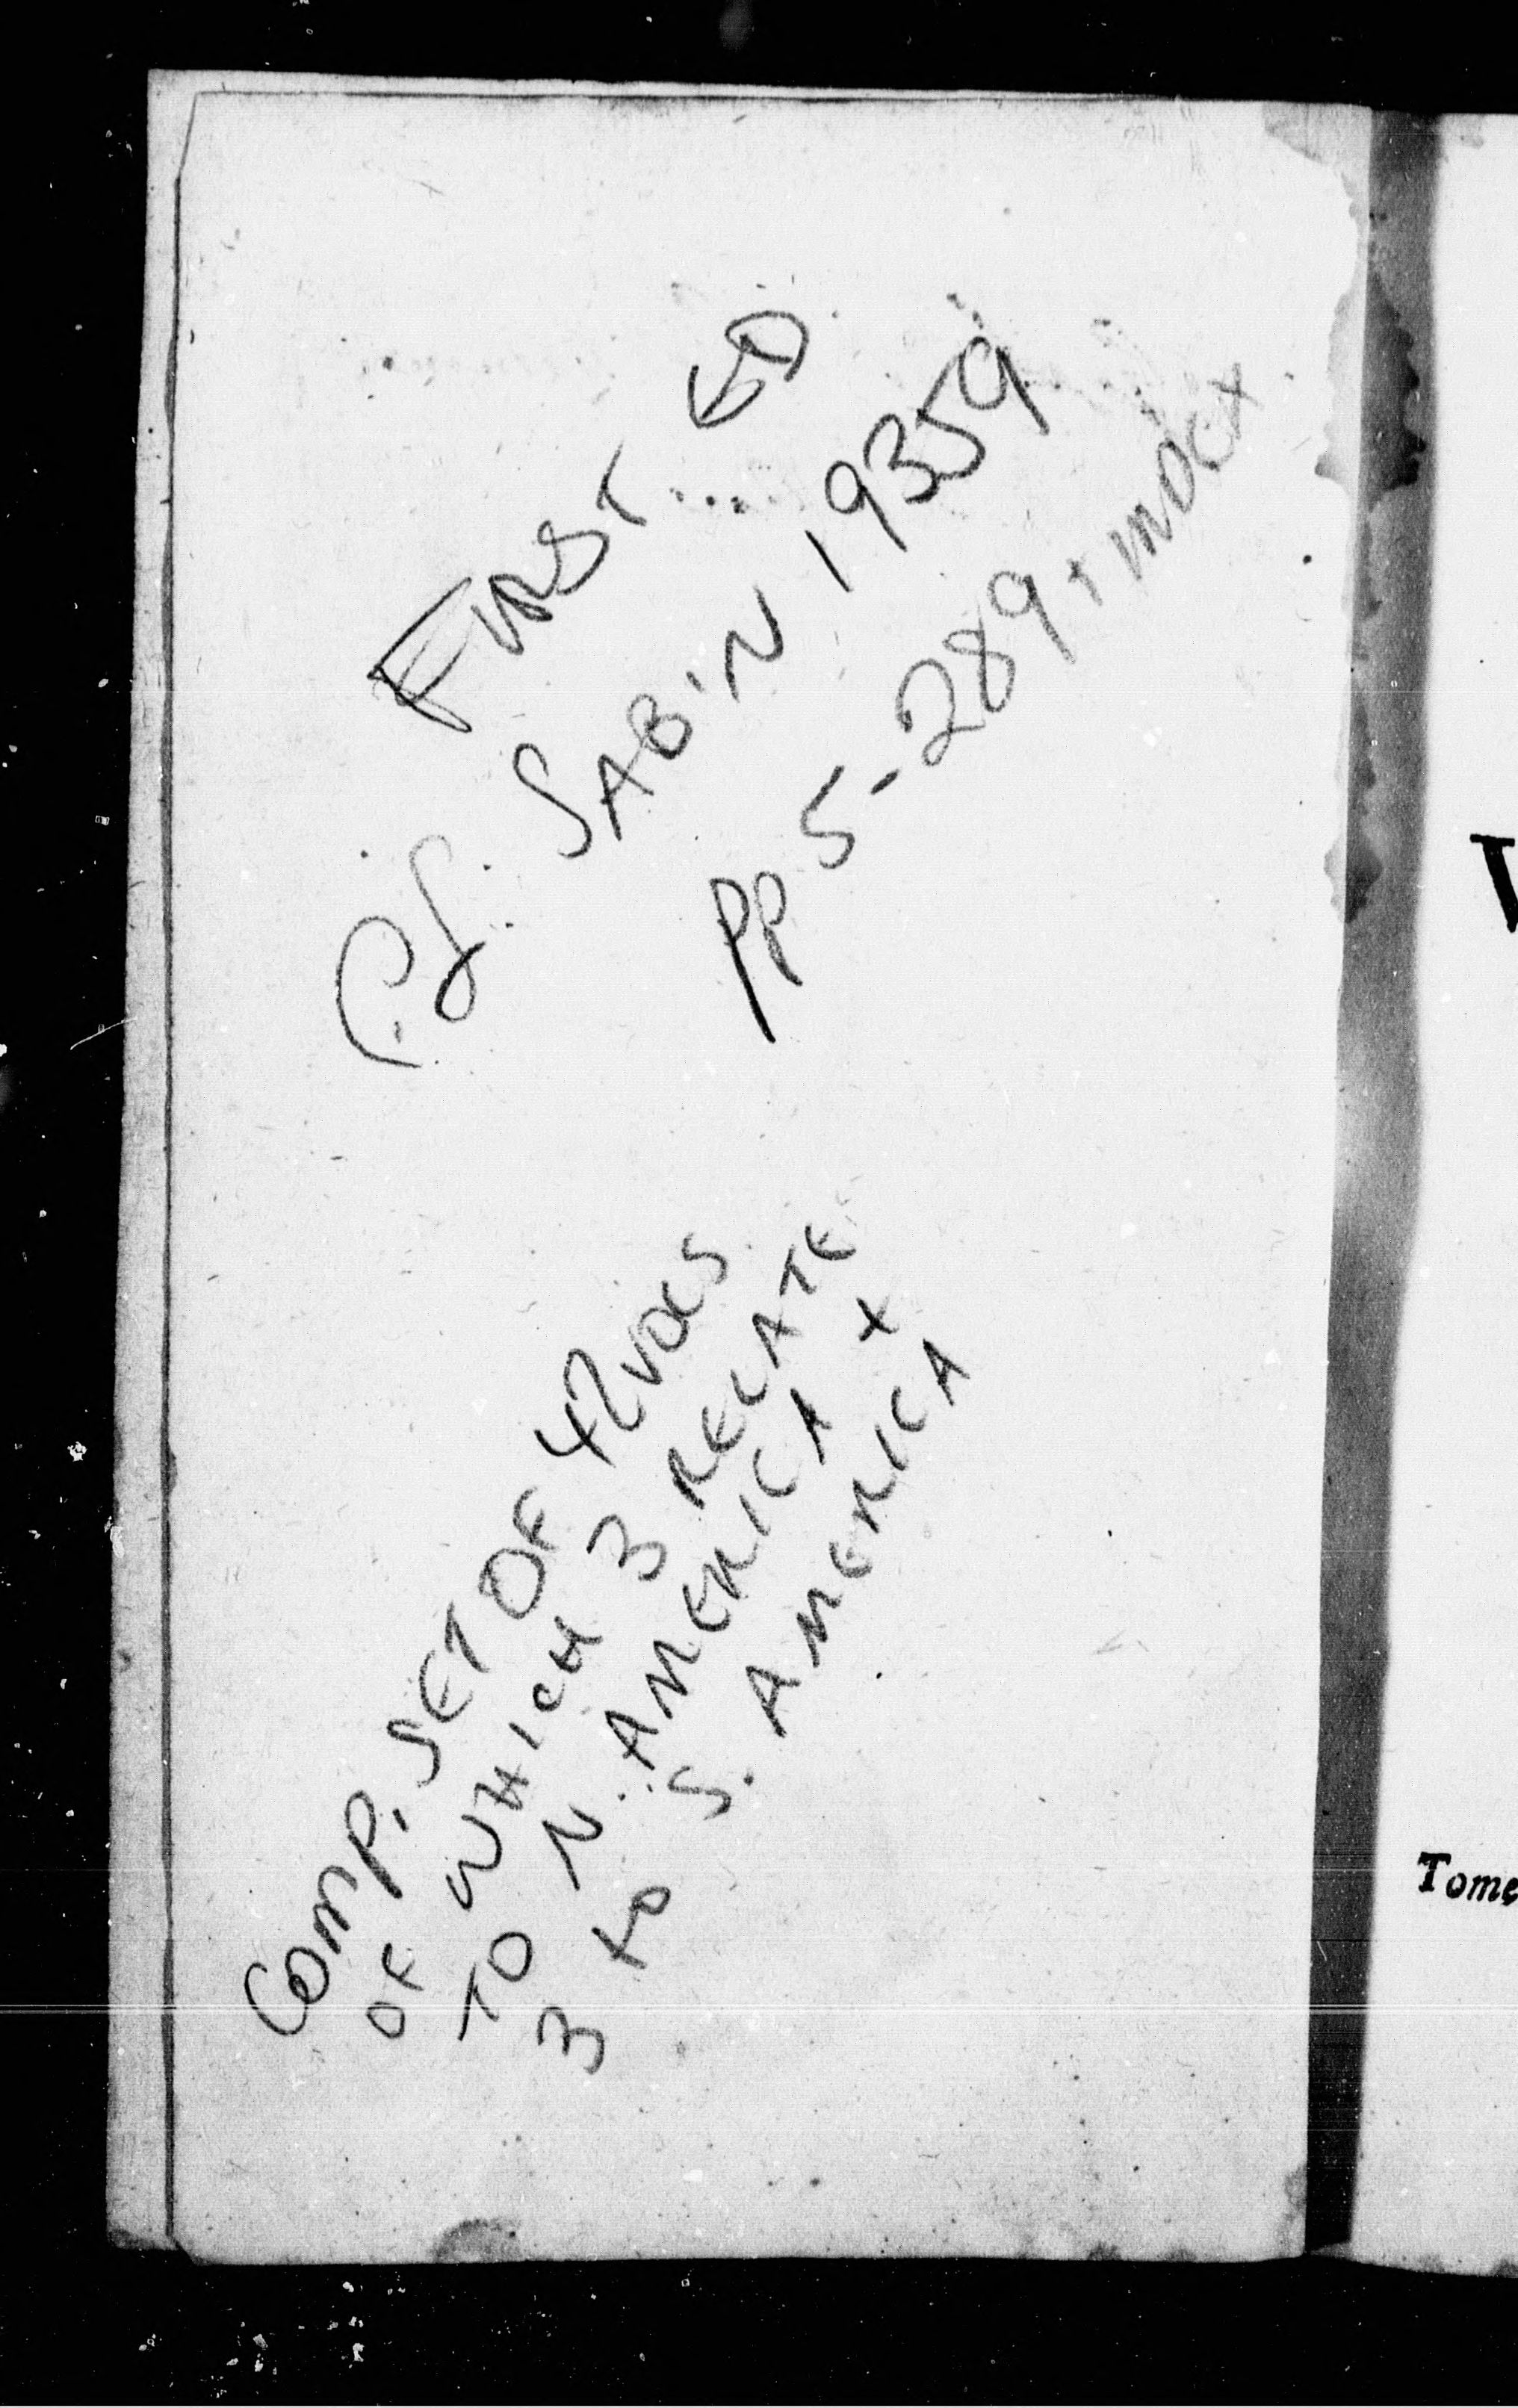 FIRST ED.
Cf. SABIN 19359
PP 5-289 + INDEX
COMP. SET OF 42 VOLS
OF WHICH 3 RELATE
TO N. AMERICA +
3 to S. AMERICA
V
Tome